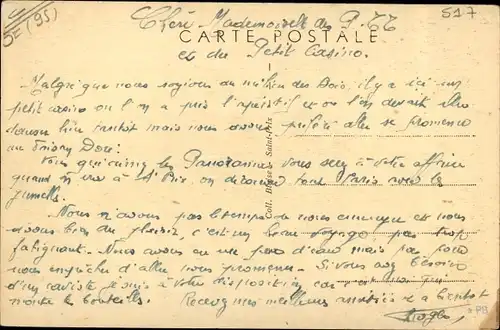 DF (95)
517
Chère Mademoiselle des P. TT
CARTE POSTALE
et du Petit Casino.
Malgré que nous soyions au milieu des Bois, il y a ici un
petit casino où l'on a pris l'apéritif et où l'on devait
danser tantôt mais nous avons préféré aller se promener
au
Vous qui aimez les Panoramas vous serez à votre affaire
quand on va à St Prix, on découvre tout Paris avec la
jumelle.
Nous n'avons pas le temps de nous ennuyer et nous
avons bien du plaisir, c'est un beau voyage, pas trop
fatiguant. Nous avons eu un peu d'eau mais pas pour
nous empêcher d'aller nous promener. Si vous avez besoin
d'un caviste je suis à votre disposition car c'est moi qui
monte les bouteilles. Recevez mes meilleures amitiés et à bientôt
Coll. Saint-Prix
PB